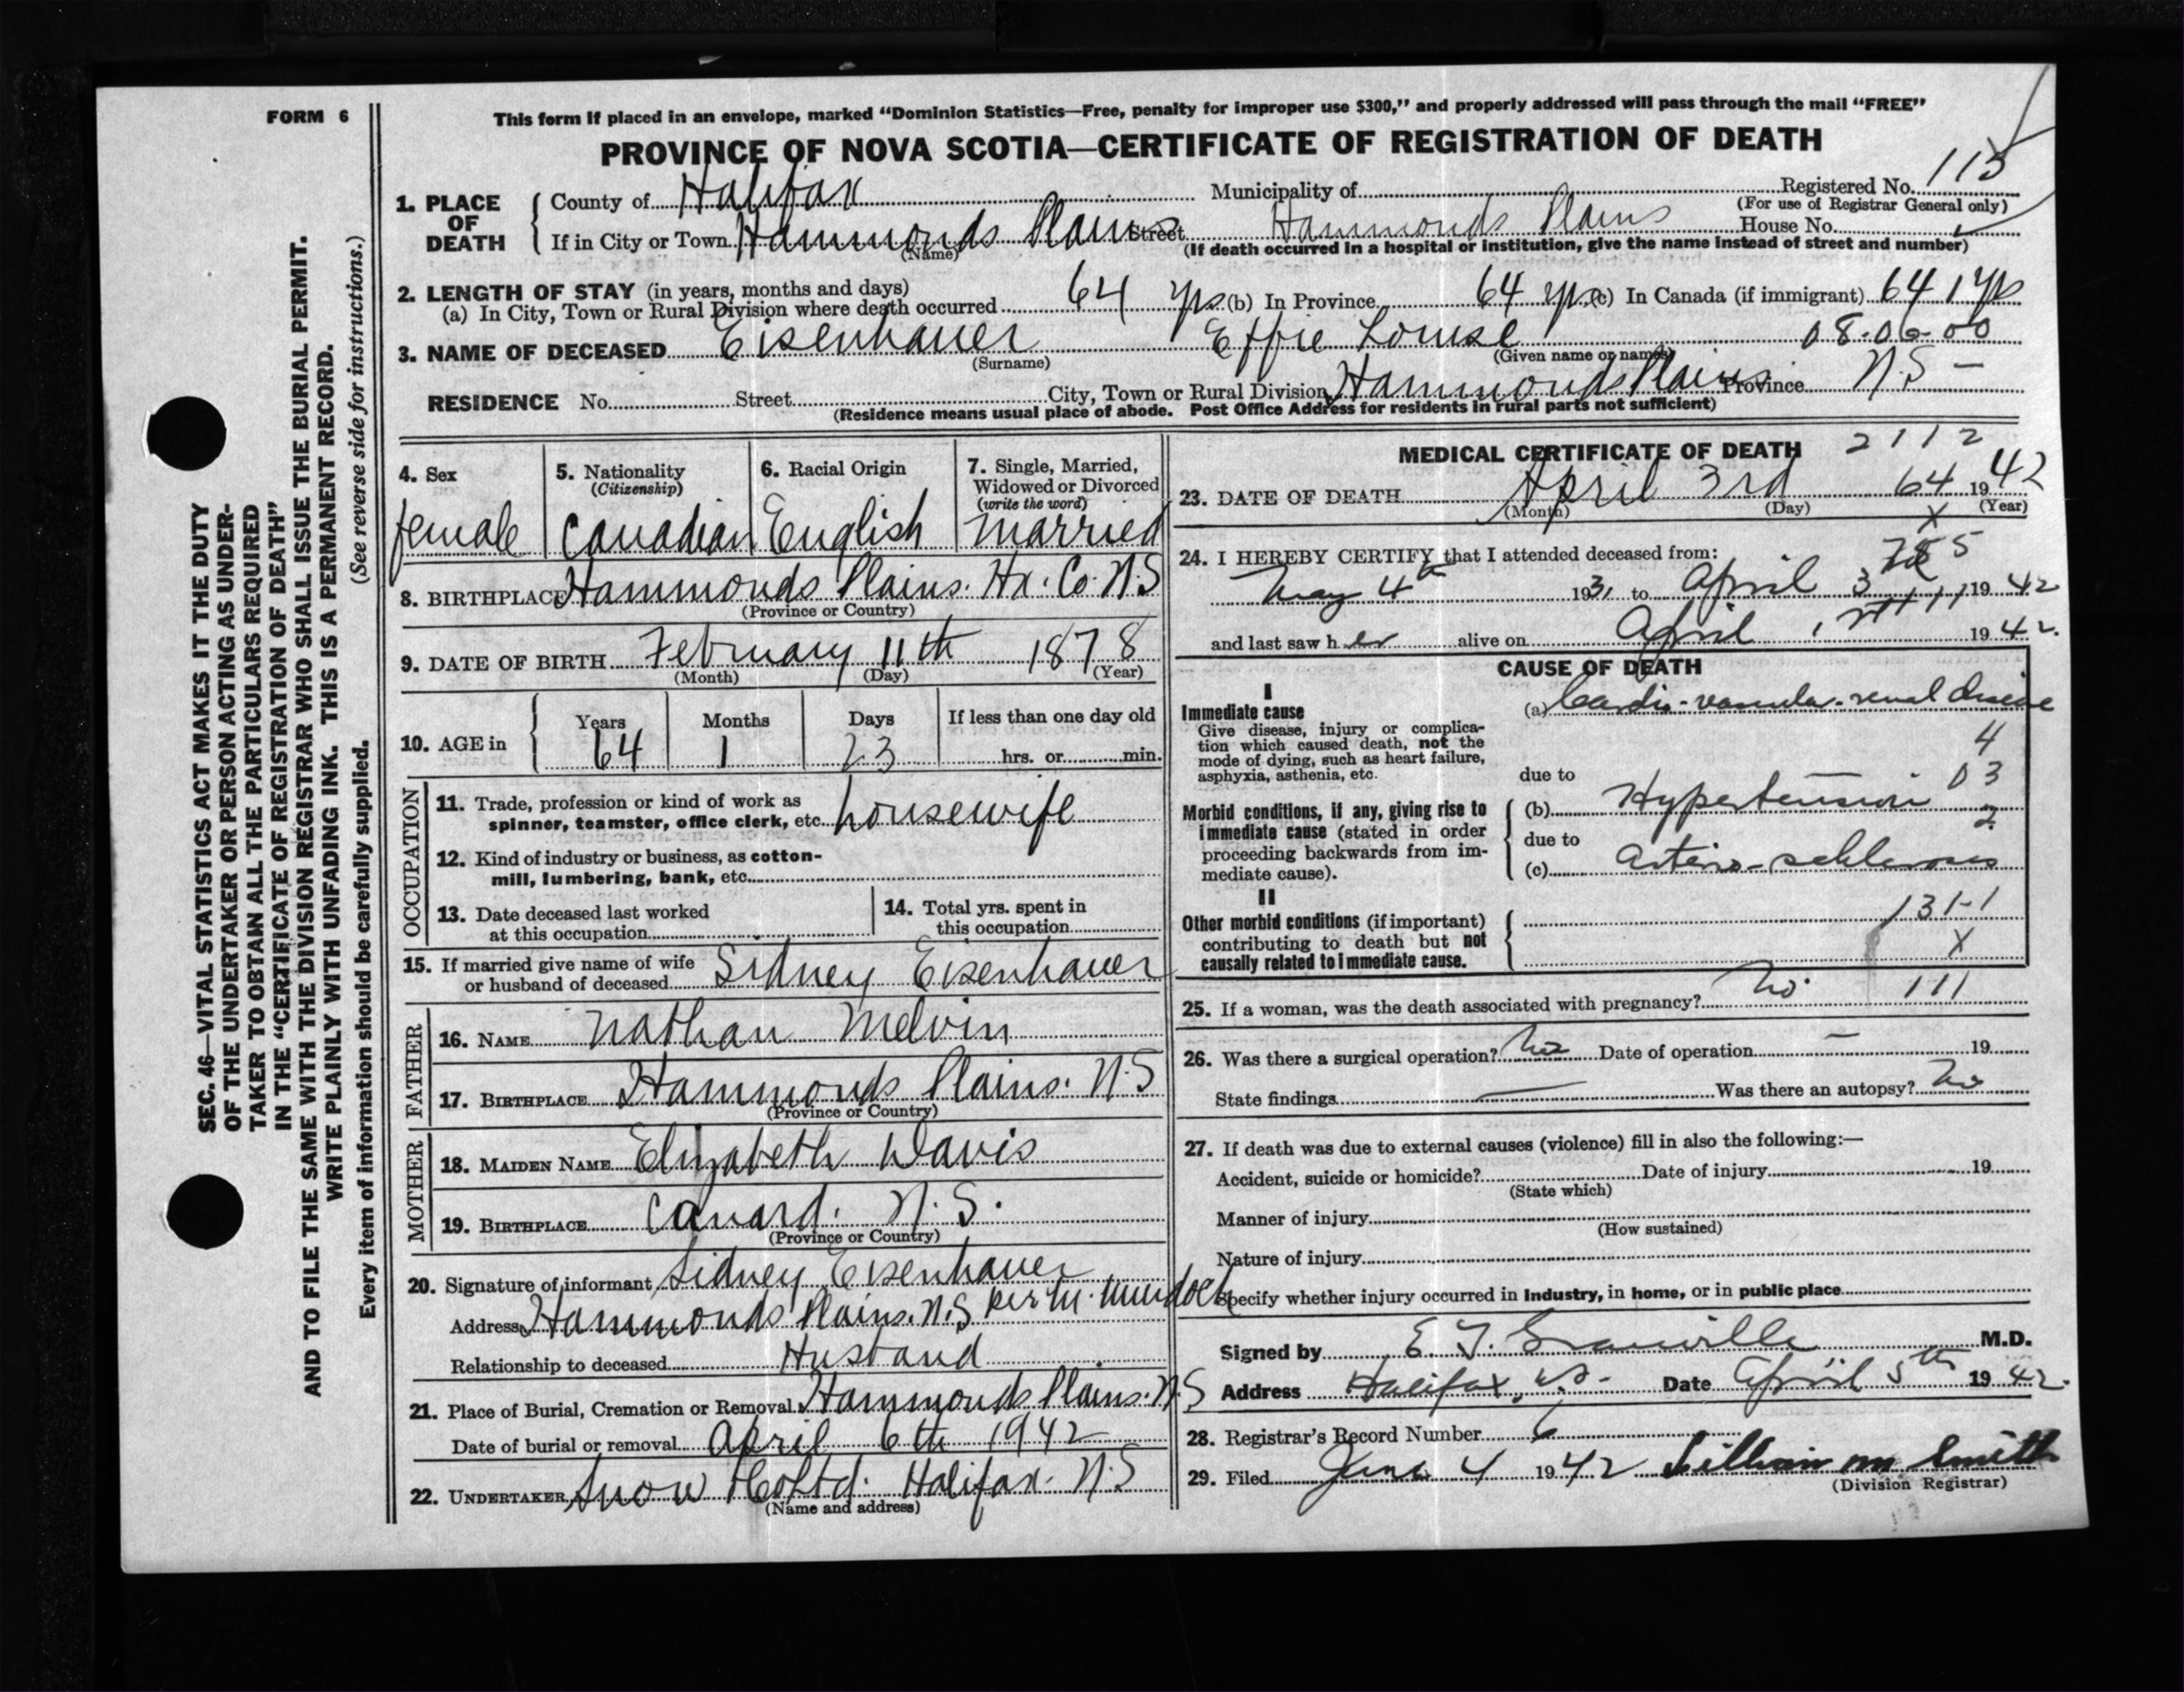 FORM 6
This form if placed in an envelope, marked “Dominion Statistics—Free, penalty for improper use $300,” and properly addressed will pass through the mail “FREE”
PROVINCE OF NOVA SCOTIA—CERTIFICATE OF REGISTRATION OF DEATH
SEC. 46—VITAL STATISTICS ACT MAKES IT THE DUTY
OF THE UNDERTAKER OR PERSON ACTING AS UNDER-
TAKER TO OBTAIN ALL THE PARTICULARS REQUIRED
IN THE “CERTIFICATE OF REGISTRATION OF DEATH”
AND TO FILE THE SAME WITH THE DIVISION REGISTRAR WHO SHALL ISSUE THE BURIAL PERMIT.
WRITE PLAINLY WITH UNFADING INK. THIS IS A PERMANENT RECORD.
Every item of information should be carefully supplied. (See reverse side for instructions.)
1. PLACE OF DEATH
County of Halifax Municipality of Registered No. 115
(For use of Registrar General only)
If in City or Town Hammonds Plains Street Hammonds Plains House No.
(Name) (If death occurred in a hospital or institution, give the name instead of street and number)
2. LENGTH OF STAY (in years, months and days)
(a) In City, Town or Rural Division where death occurred 64 yrs (b) In Province 64 yrs (c) In Canada (if immigrant) 64 1 yrs
3. NAME OF DECEASED Eisenhauer Effie Louise 08-06-00
(Surname) (Given name or names)
RESIDENCE No. Street City, Town or Rural Division Hammonds Plains Province N.S –
(Residence means usual place of abode. Post Office Address for residents in rural parts not sufficient)
4. Sex 5. Nationality (Citizenship) 6. Racial Origin 7. Single, Married, Widowed or Divorced (write the word)
female Canadian English married
8. BIRTHPLACE Hammonds Plains. Hx. Co. N.S
(Province or Country)
9. DATE OF BIRTH February 11th 1878
(Month) (Day) (Year)
10. AGE in Years Months Days If less than one day old
64 1 23 hrs. or min.
OCCUPATION
11. Trade, profession or kind of work as
spinner, teamster, office clerk, etc. housewife
12. Kind of industry or business, as cotton-
mill, lumbering, bank, etc.
13. Date deceased last worked
at this occupation
14. Total yrs. spent in
this occupation
15. If married give name of wife
or husband of deceased Sidney Eisenhauer
FATHER
16. NAME Nathan Melvin
17. BIRTHPLACE Hammonds Plains. N.S
(Province or Country)
MOTHER
18. MAIDEN NAME Elizabeth Davis
19. BIRTHPLACE Canard. N.S.
(Province or Country)
20. Signature of informant Sidney Eisenhauer
per M. Murdoch
Address Hammonds Plains. N.S
Relationship to deceased Husband
21. Place of Burial, Cremation or Removal Hammonds Plains. N.S
Date of burial or removal April 6th 1942
22. UNDERTAKER Snow & Co Ltd. Halifax. N.S
(Name and address)
MEDICAL CERTIFICATE OF DEATH 2112
23. DATE OF DEATH April 3rd 64 1942
(Month) (Day) (Year)
X
24. I HEREBY CERTIFY that I attended deceased from:
May 4th 1931 to April 3 1942
and last saw her alive on April 1st 1942.
CAUSE OF DEATH
I
Immediate cause (a) Cardio-vascular-renal disease
Give disease, injury or complica-
tion which caused death, not the
mode of dying, such as heart failure,
asphyxia, asthenia, etc.
4
due to 03
Morbid conditions, if any, giving rise to
immediate cause (stated in order
proceeding backwards from im-
mediate cause).
(b) Hypertension
2
due to
(c) Arterio-schlerosis
II
Other morbid conditions (if important)
contributing to death but not
causally related to immediate cause.
131-1
X
25. If a woman, was the death associated with pregnancy? No. 111
26. Was there a surgical operation? No Date of operation – 19
State findings — Was there an autopsy? No
27. If death was due to external causes (violence) fill in also the following:—
Accident, suicide or homicide? Date of injury 19
(State which)
Manner of injury
(How sustained)
Nature of injury
Specify whether injury occurred in Industry, in home, or in public place
Signed by E. T. Granville M.D.
Address Halifax, N.S. Date April 5th 1942.
28. Registrar's Record Number 6
29. Filed June 4 1942 Lillian M Smith
(Division Registrar)